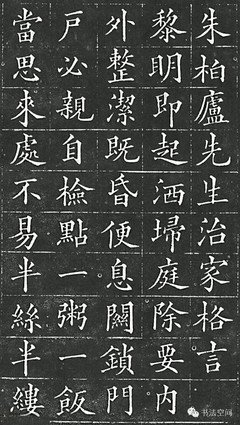 朱柏廬先生治家格言
黎明即起洒埽庭除要内
外整潔既昏便息關鎖門
戶必親自檢點一粥一飯
當思來處不易半絲半縷
书法空间